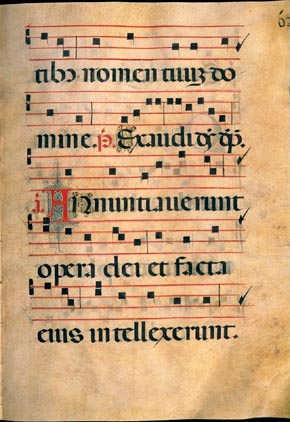 tibꝫ nomen tuuꝫ do
mine. p̄. Exaudi
Annuntiauerunt
opera dei et facta
eius intellexerunt.